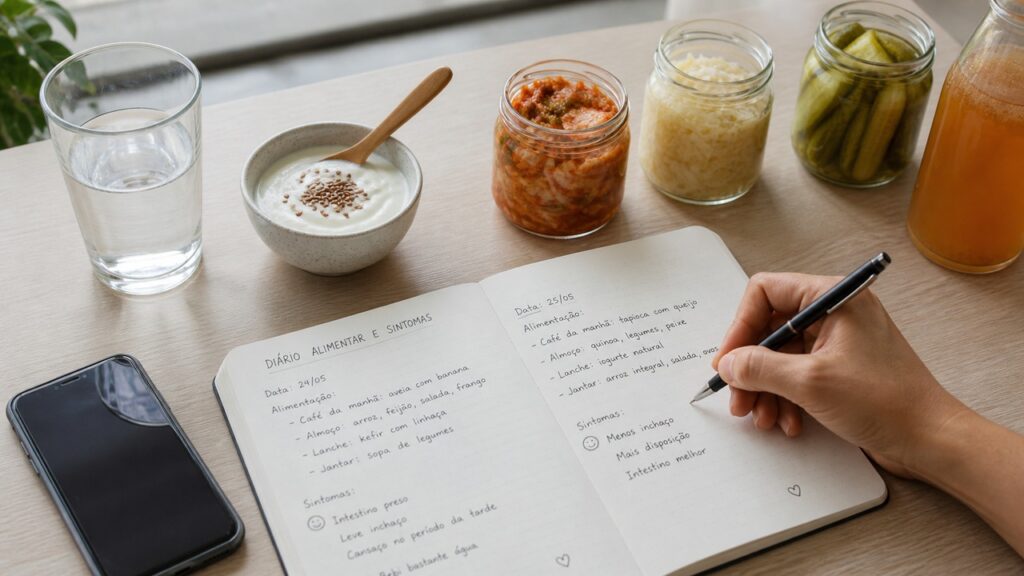 DIÁRIO ALIMENTAR E SINTOMAS
Data: 24/05
Alimentação:
- Café da manhã: aveia com banana
- Almoço: arroz, feijão, salada, frango
- Lanche: kefir com linhaça
- Jantar: sopa de legumes
Sintomas:
Intestino preso
Leve inchaço
Cansaço no período da tarde
bebi bastante água
Data: 25/05
Alimentação:
- Café da manhã: tapioca com queijo
- Almoço: quinoa, legumes, peixe
- Lanche: iogurte natural
- Jantar: arroz integral, salada, ovos
Sintomas:
Menos inchaço
Mais disposição
Intestino melhor